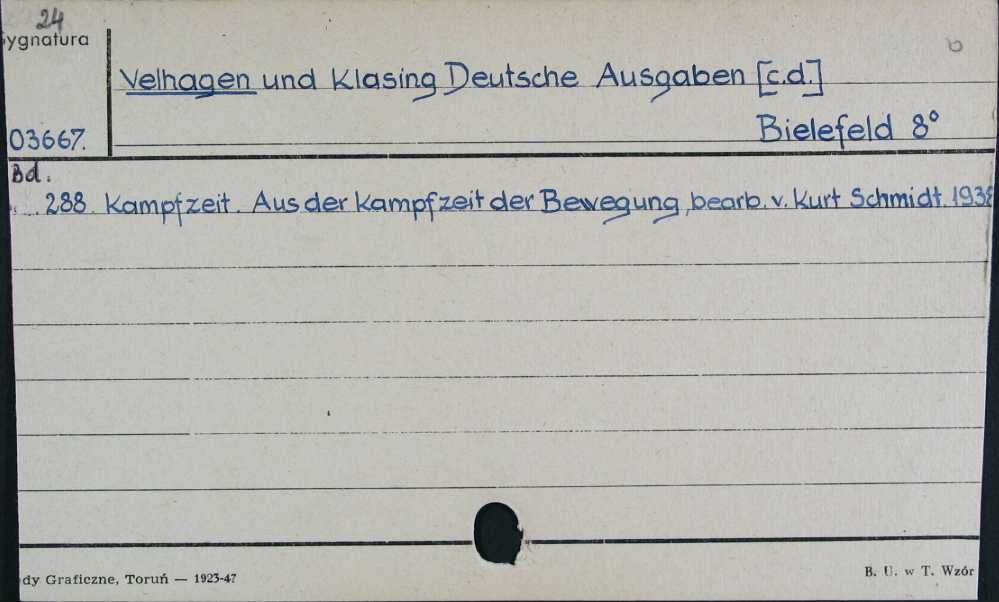 24
Sygnatura
6
Velhagen und Klasing Deutsche Ausgaben [c.d.]
03667.
Bielefeld 8°
Bd.
288. Kampfzeit. Aus der Kampfzeit der Bewegung, bearb. v. Kurt Schmidt. 1938
dy Graficzne, Toruń — 1923-47
B. U. w T. Wzór